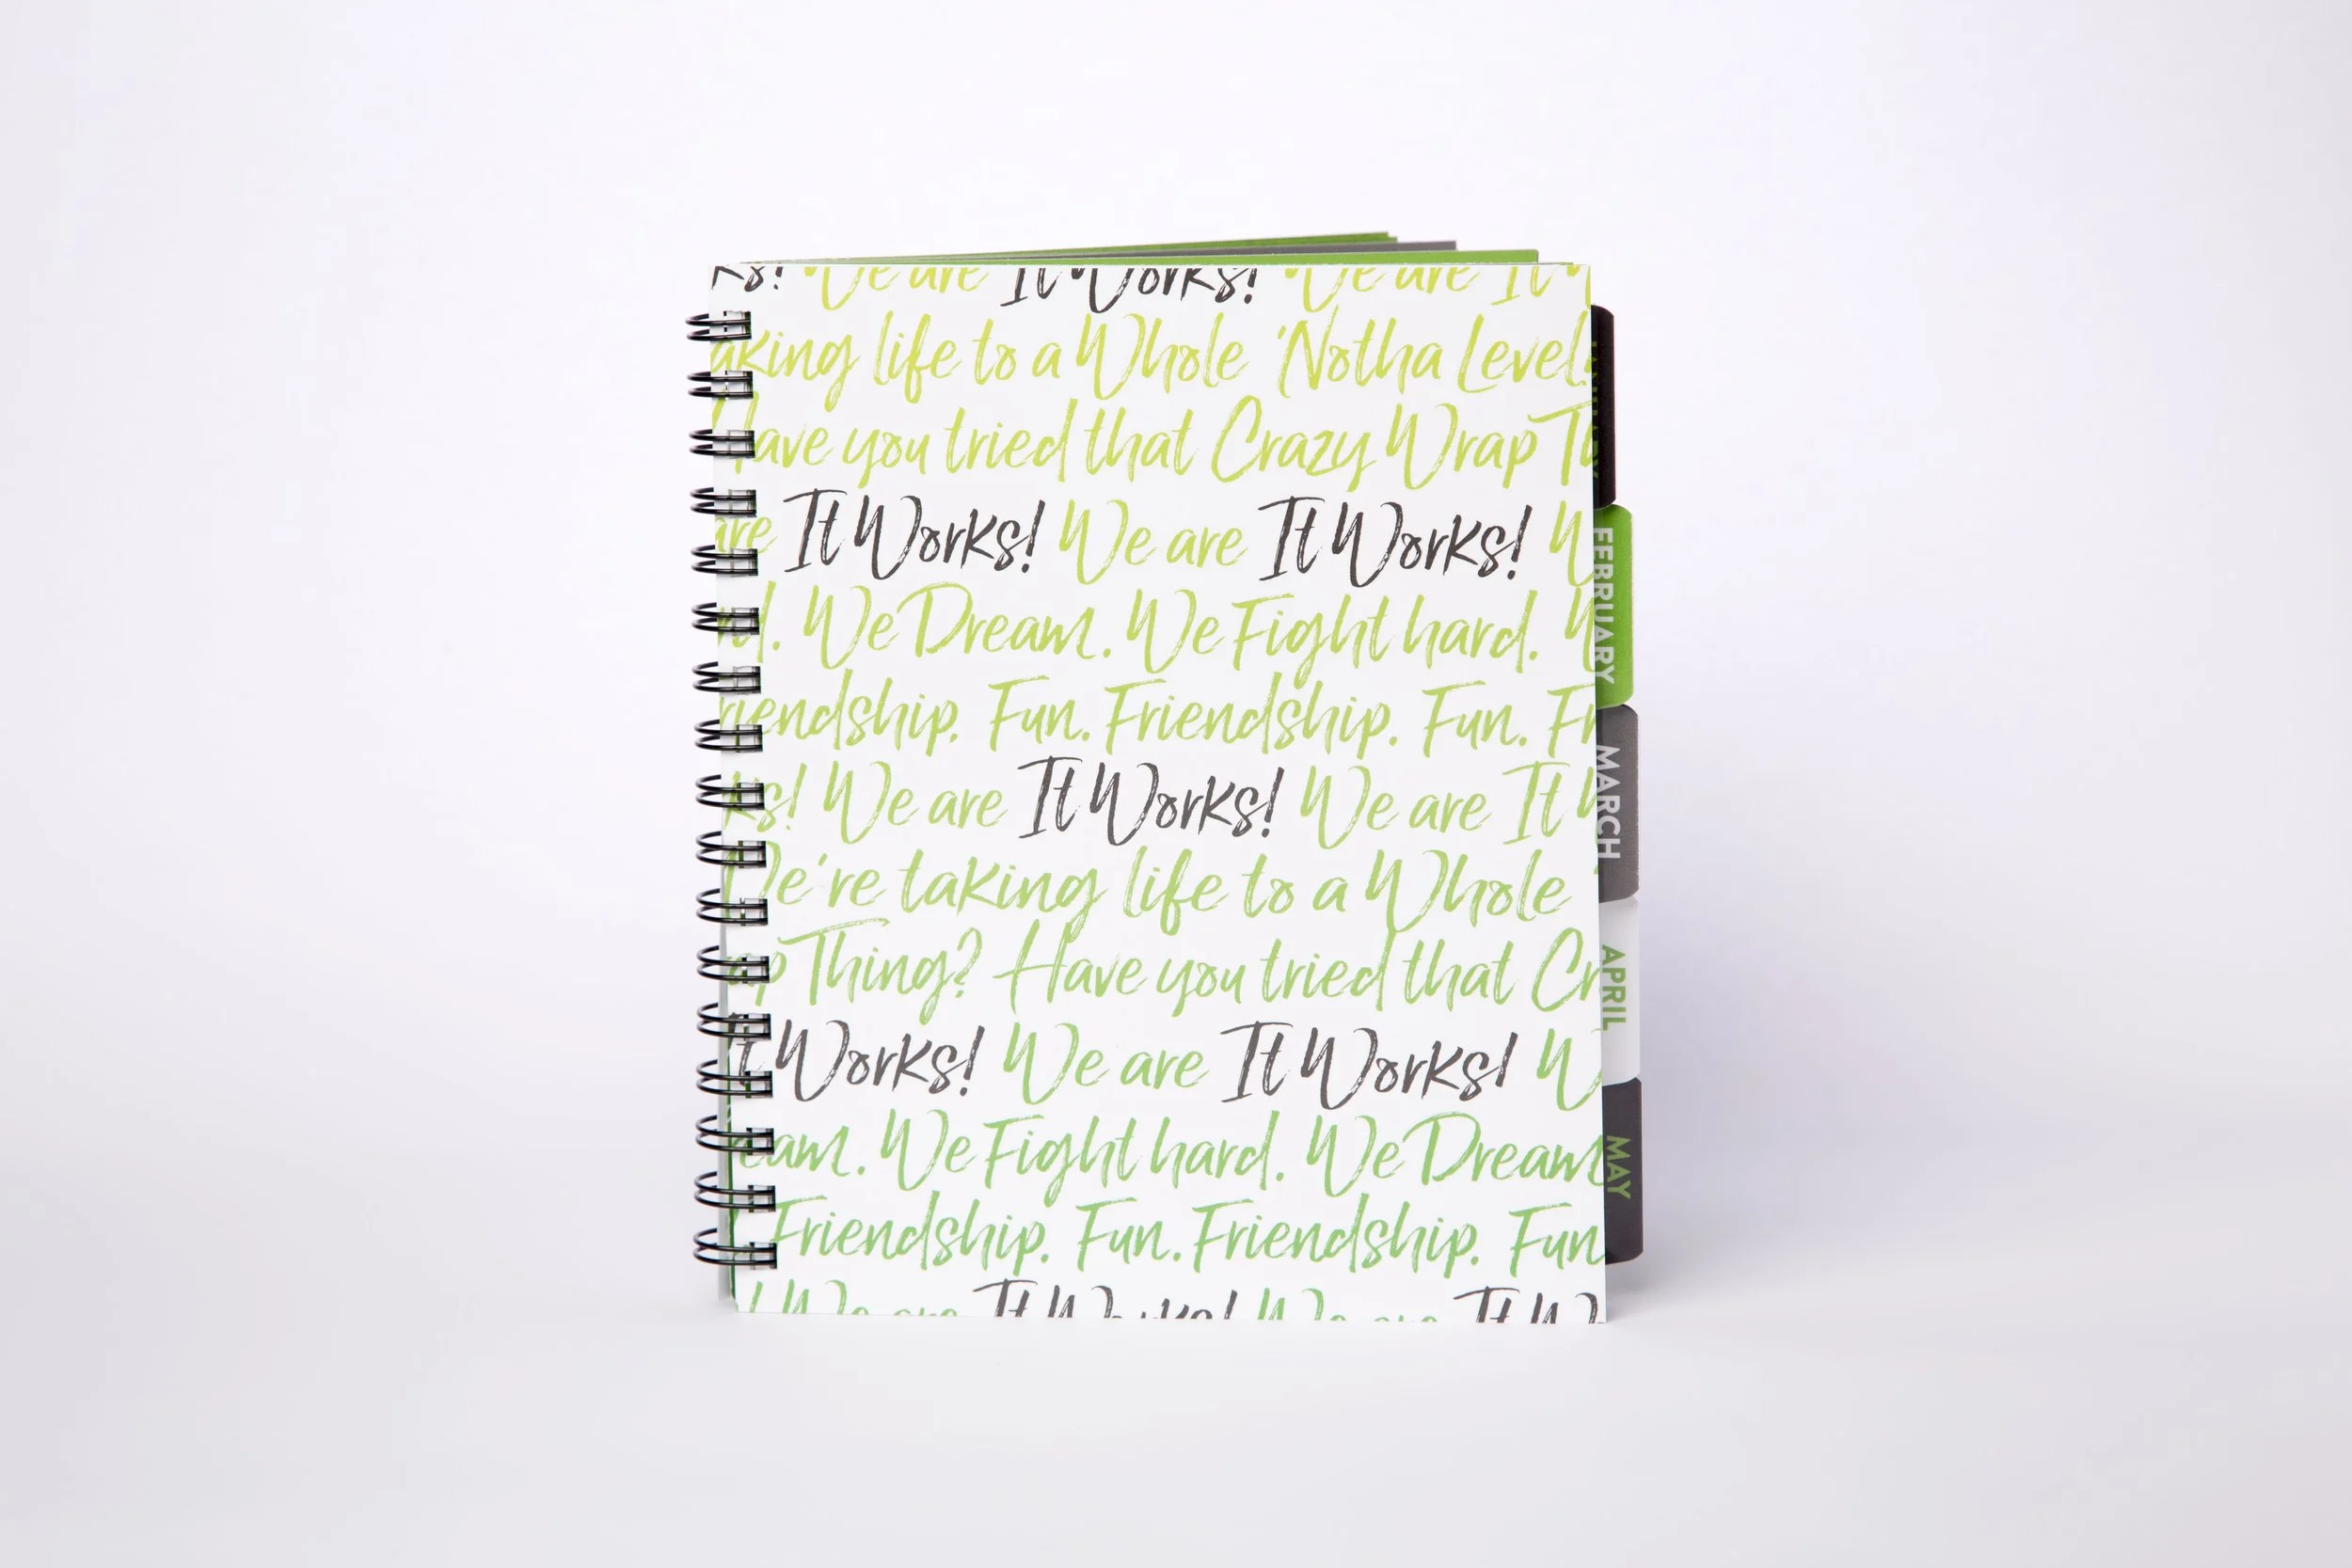 We are It Works! We are It
taking life to a Whole 'Notha Level!
Have you tried that Crazy Wrap
are It Works! We are It Works!
We Dream. We Fight hard.
Friendship. Fun. Friendship. Fun.
ks! We are It Works! We are It
We're taking life to a Whole
Thing? Have you tried that
It Works! We are It Works!
eam. We Fight hard. We Dream
Friendship. Fun. Friendship. Fun
We are It Works! We are It W
FEBRUARY
MARCH
APRIL
MAY